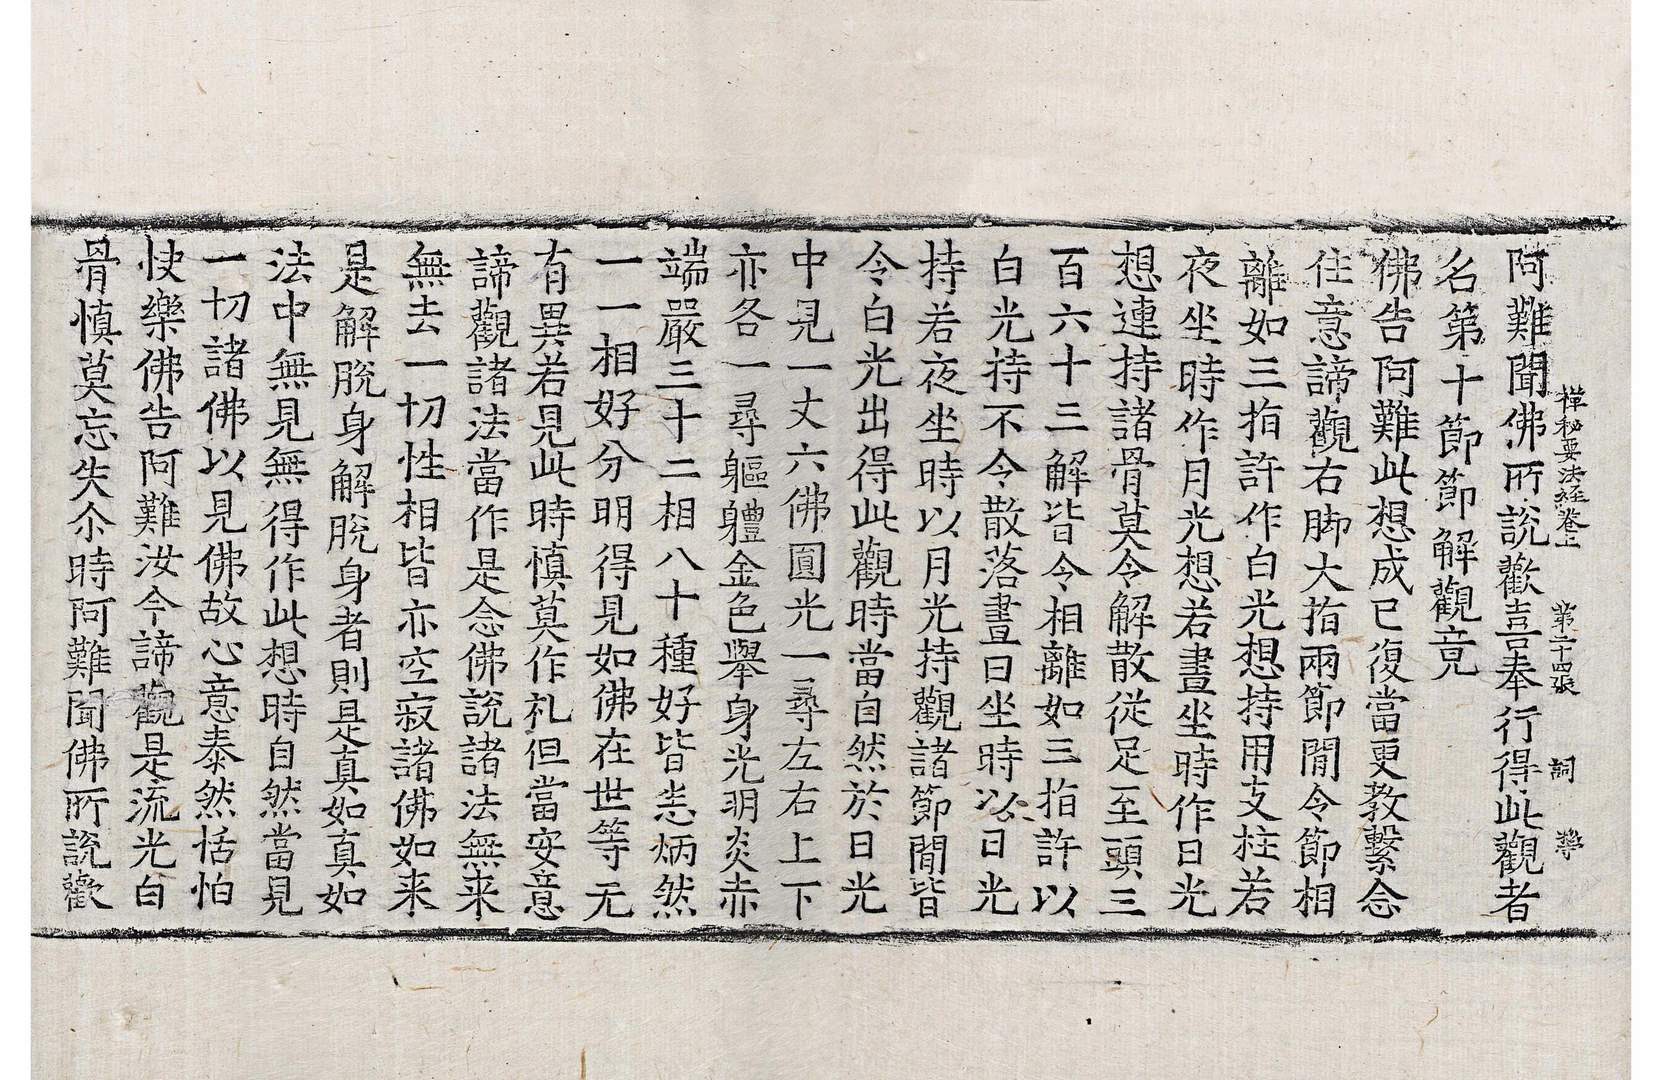 禪秘要法經卷上　第二十四張　詞
阿難聞佛所說歡喜奉行得此觀者
名第十節節解觀竟
佛告阿難此想成已復當更教繫念
住意諦觀右脚大指兩節間令節相
離如三指許作白光想持用支柱若
夜坐時作月光想若晝坐時作日光
想連持諸骨莫令解散從足至頭三
百六十三解皆令相離如三指許以
白光持不令散落晝日坐時以日光
持若夜坐時以月光持觀諸節間皆
令白光出得此觀時當自然於日光
中見一丈六佛圓光一尋左右上下
亦各一尋軀軆金色舉身光明炎赤
端嚴三十二相八十種好皆悉炳然
一一相好分明得見如佛在世等无
有異若見此時慎莫作礼但當安意
諦觀諸法當作是念佛說諸法無来
無去一切性相皆亦空寂諸佛如来
是解脫身解脫身者則是真如真如
法中無見無得作此想時自然當見
一切諸佛以見佛故心意泰然恬怕
快樂佛告阿難汝今諦觀是流光白
骨慎莫忘失尒時阿難聞佛所說歡